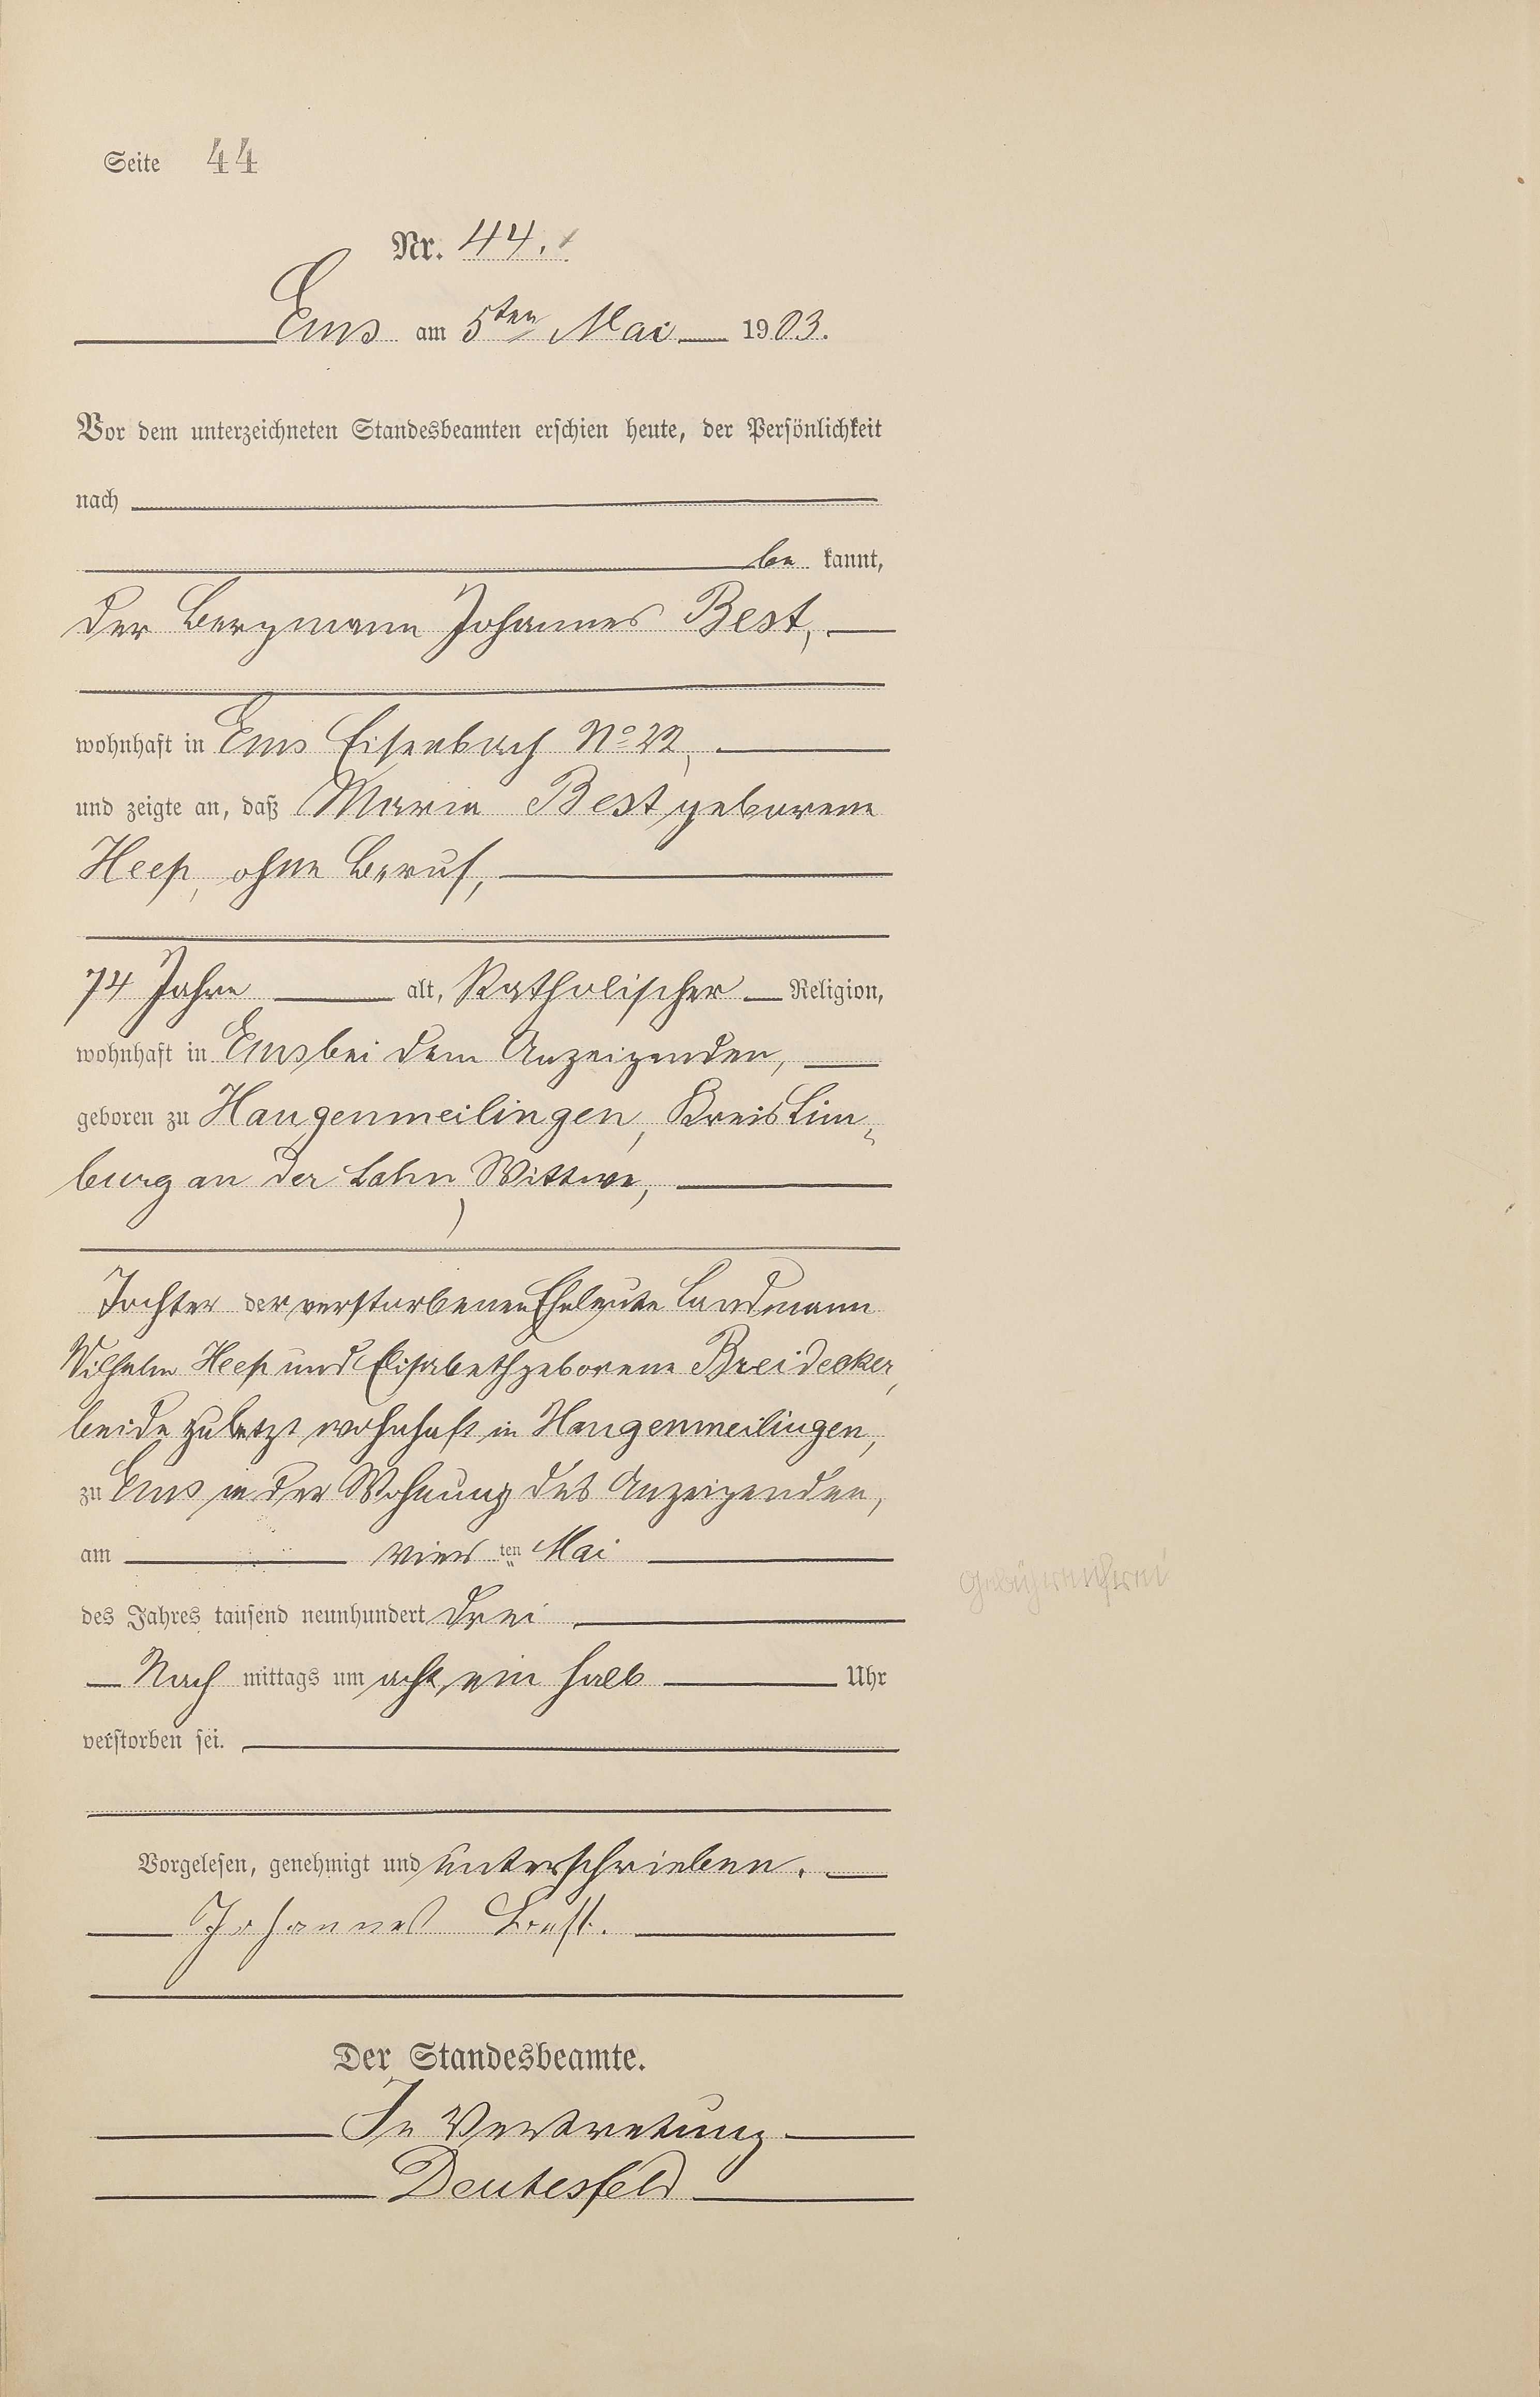 Seite 44
Nr. 44.
Ems am 5ten Mai 1903.
Vor dem unterzeichneten Standesbeamten erschien heute, der Persönlichkeit
nach
be kannt,
der Bergmann Johannes Best,
wohnhaft in Ems Eisenbach No 22,
und zeigte an, daß Maria Best geborene
Heep, ohne Beruf,
74 Jahre alt, Katholischer Religion,
wohnhaft in Ems bei dem Anzeigenden,
geboren zu Hangenmeilingen, Kreis Lim-
burg an der Lahn, Wittwe,
Tochter der verstorbenen Eheleute Landmann
Wilhelm Heep und Elisabeth geborene Breidecker,
beide zuletzt wohnhaft in Hangenmeilingen,
zu Ems in der Wohnung des Anzeigenden,
am vier ten Mai
des Jahres tausend neunhundert drei
Nach mittags um acht ein halb Uhr
verstorben sei.
Vorgelesen, genehmigt und unterschrieben.
Johannes Best.
Der Standesbeamte.
In Vertretung
Deutesfeld
Gebührenfrei